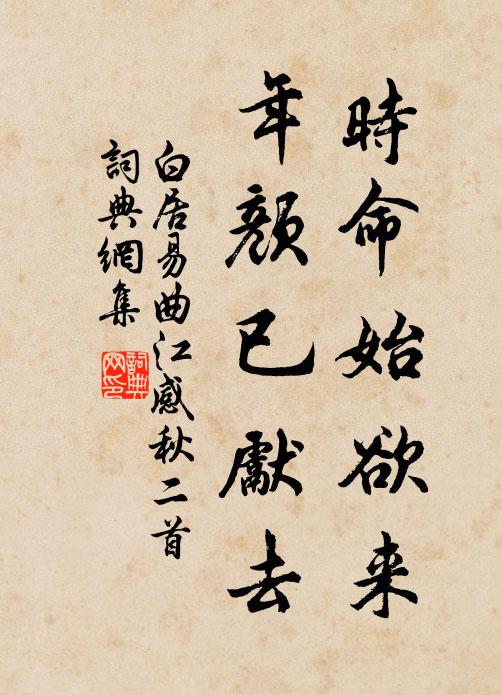 時命始欲来
年顏已獻去
白居易曲江感秋二首
詞典網集
詞典
网印